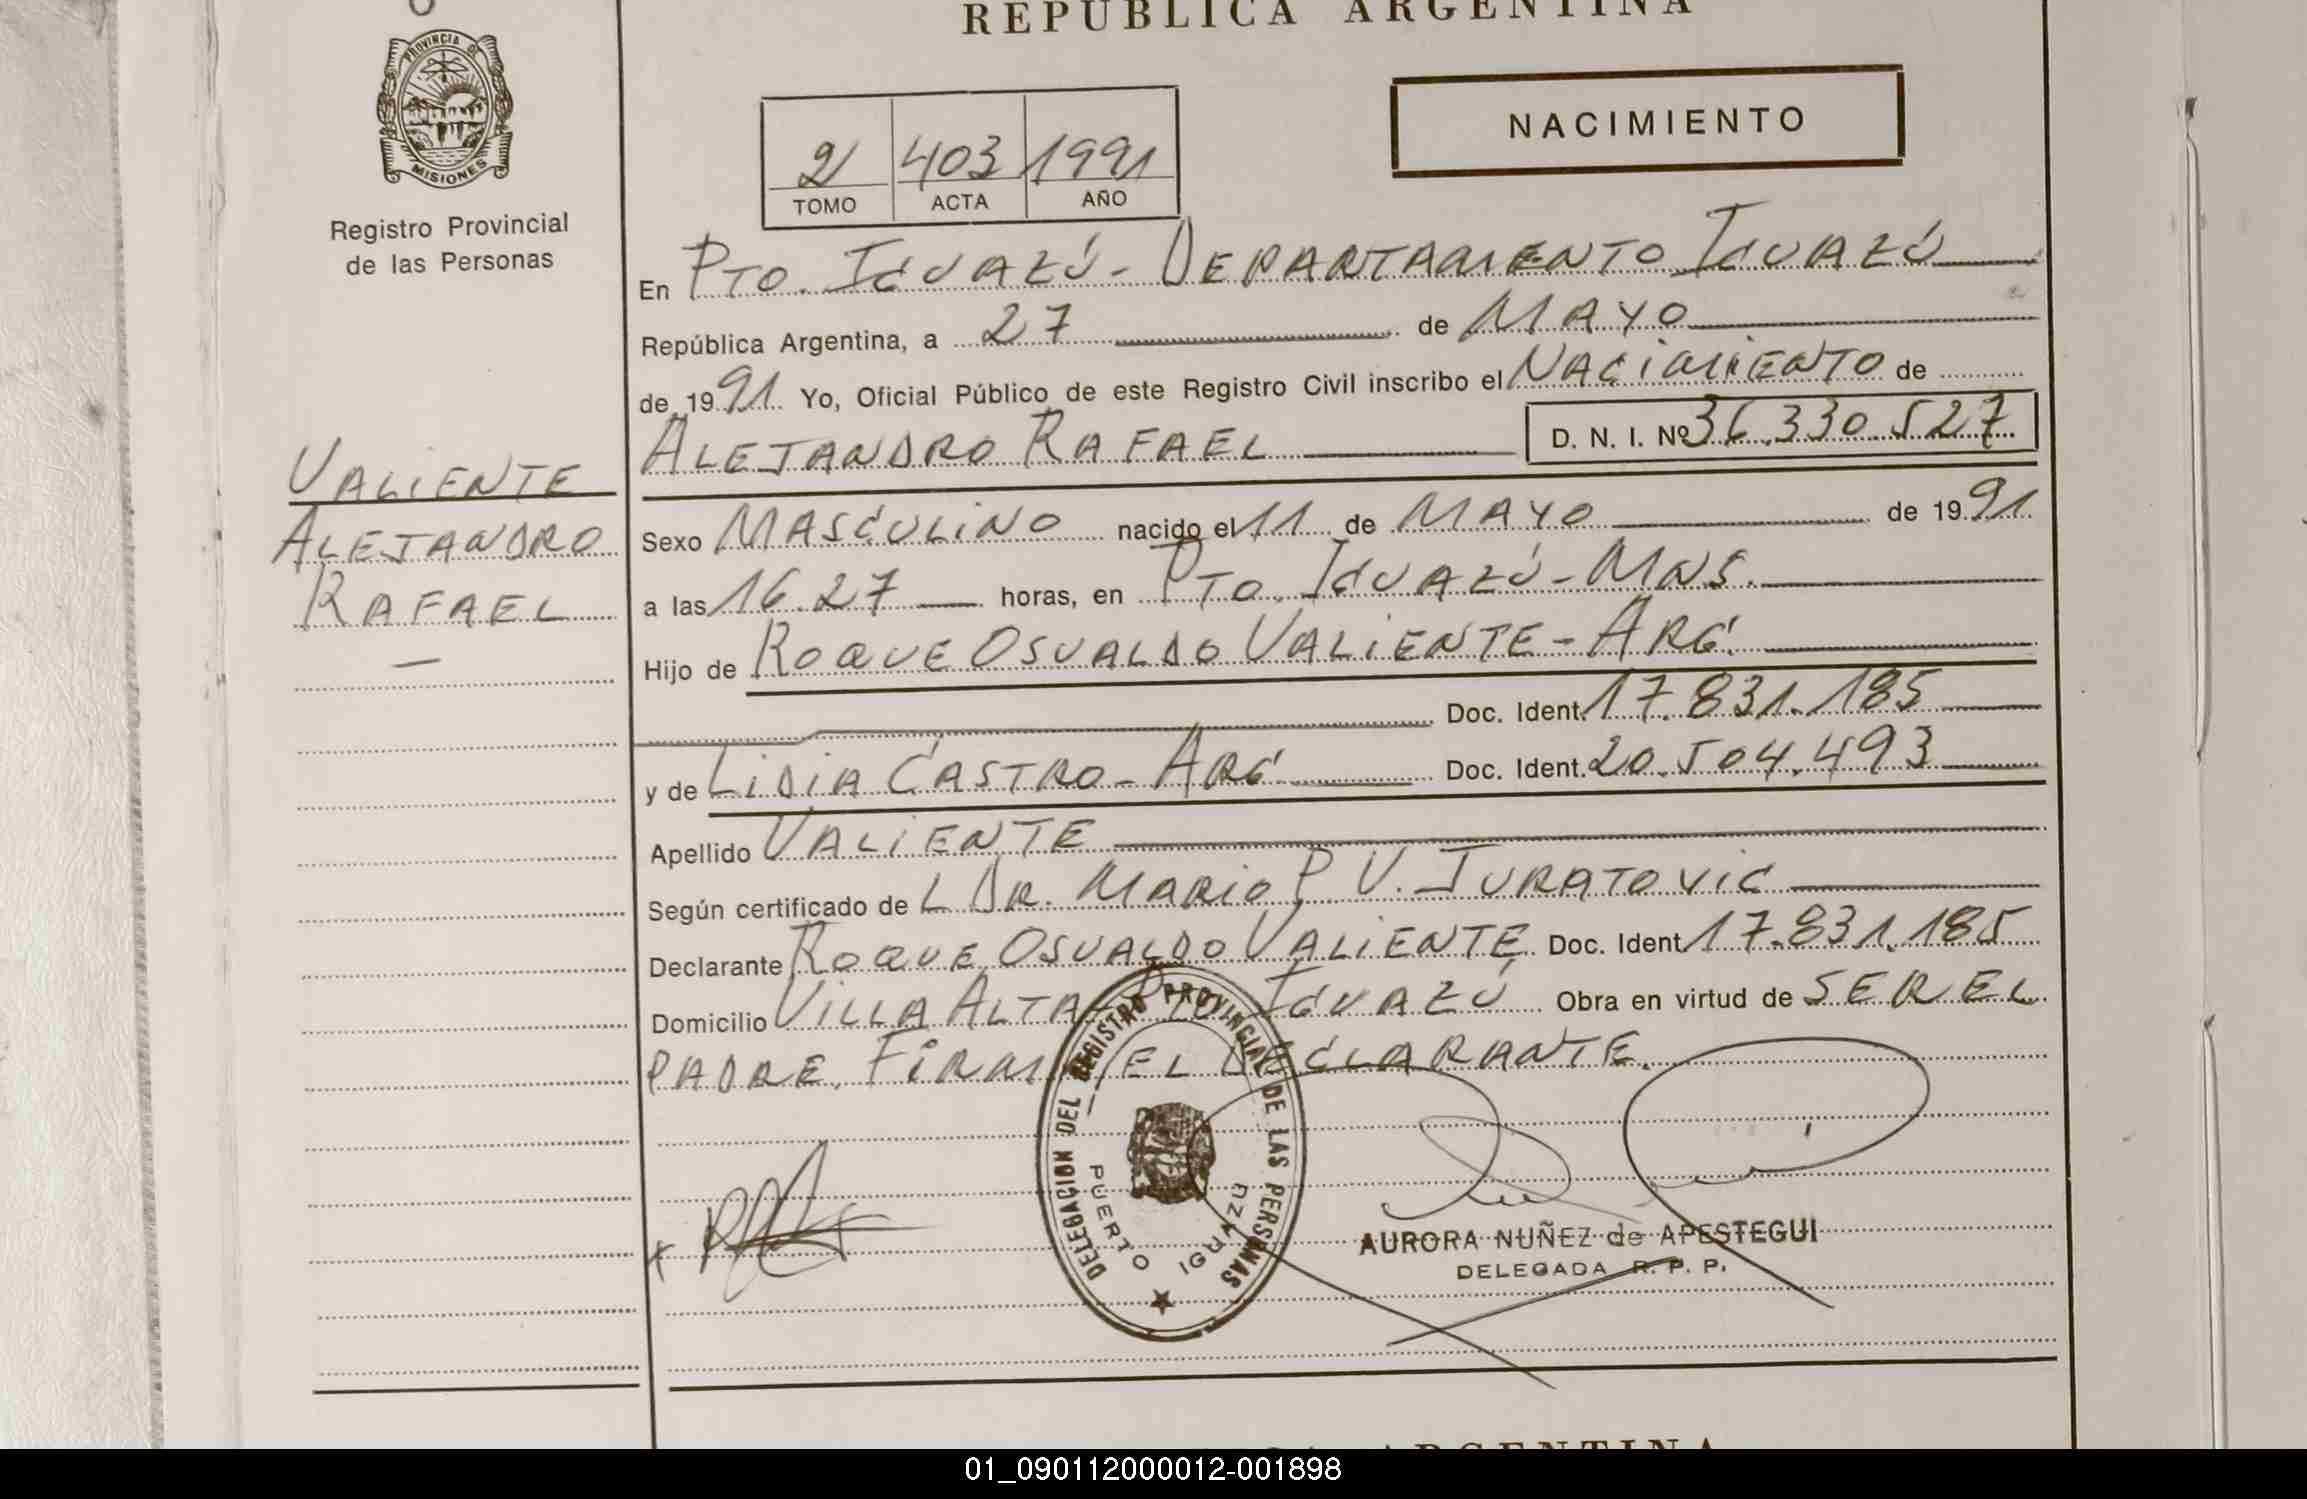 REPUBLICA ARGENTINA
PROVINCIA DE
MISIONES
Registro Provincial
de las Personas
NACIMIENTO
2 403 1991
TOMO ACTA AÑO
En PTO. IGUAZÚ - DEPARTAMENTO IGUAZÚ
República Argentina, a 27 de MAYO
de 1991 Yo, Oficial Público de este Registro Civil inscribo el NACIMIENTO de
ALEJANDRO RAFAEL D. N. I. Nº 36.330.527
VALIENTE
ALEJANDRO
RAFAEL
Sexo MASCULINO nacido el 11 de MAYO de 1991
a las 16.27 horas, en PTO. IGUAZÚ - MNS.
Hijo de ROQUE OSVALDO VALIENTE - ARG.
Doc. Ident. 17.831.185
y de LIDIA CASTRO - ARG Doc. Ident. 20.504.493
Apellido VALIENTE
Según certificado de L DR. MARIO P. V. JURATOVIC
Declarante ROQUE OSVALDO VALIENTE Doc. Ident 17.831.185
Domicilio VILLA ALTA - PTO IGUAZÚ Obra en virtud de SER EL
PADRE. FIRMA EL DECLARANTE.
DELEGACION DEL REGISTRO PROVINCIAL DE LAS PERSONAS
PUERTO IGUAZU
AURORA NUÑEZ de APESTEGUI
DELEGADA R. P. P.
ARGENTINA
01_090112000012-001898